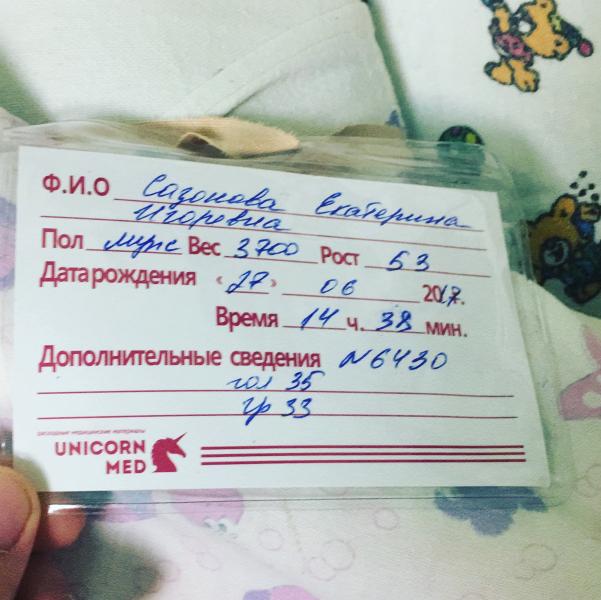 Ф.И.О Сазонова Екатерина
Игоревна
Пол муж Вес 3700 Рост 53
Дата рождения «27» 06 2017.
Время 14 ч. 38 мин.
Дополнительные сведения N6430
гол 35
гр 33
расходные медицинские материалы
UNICORN
MED